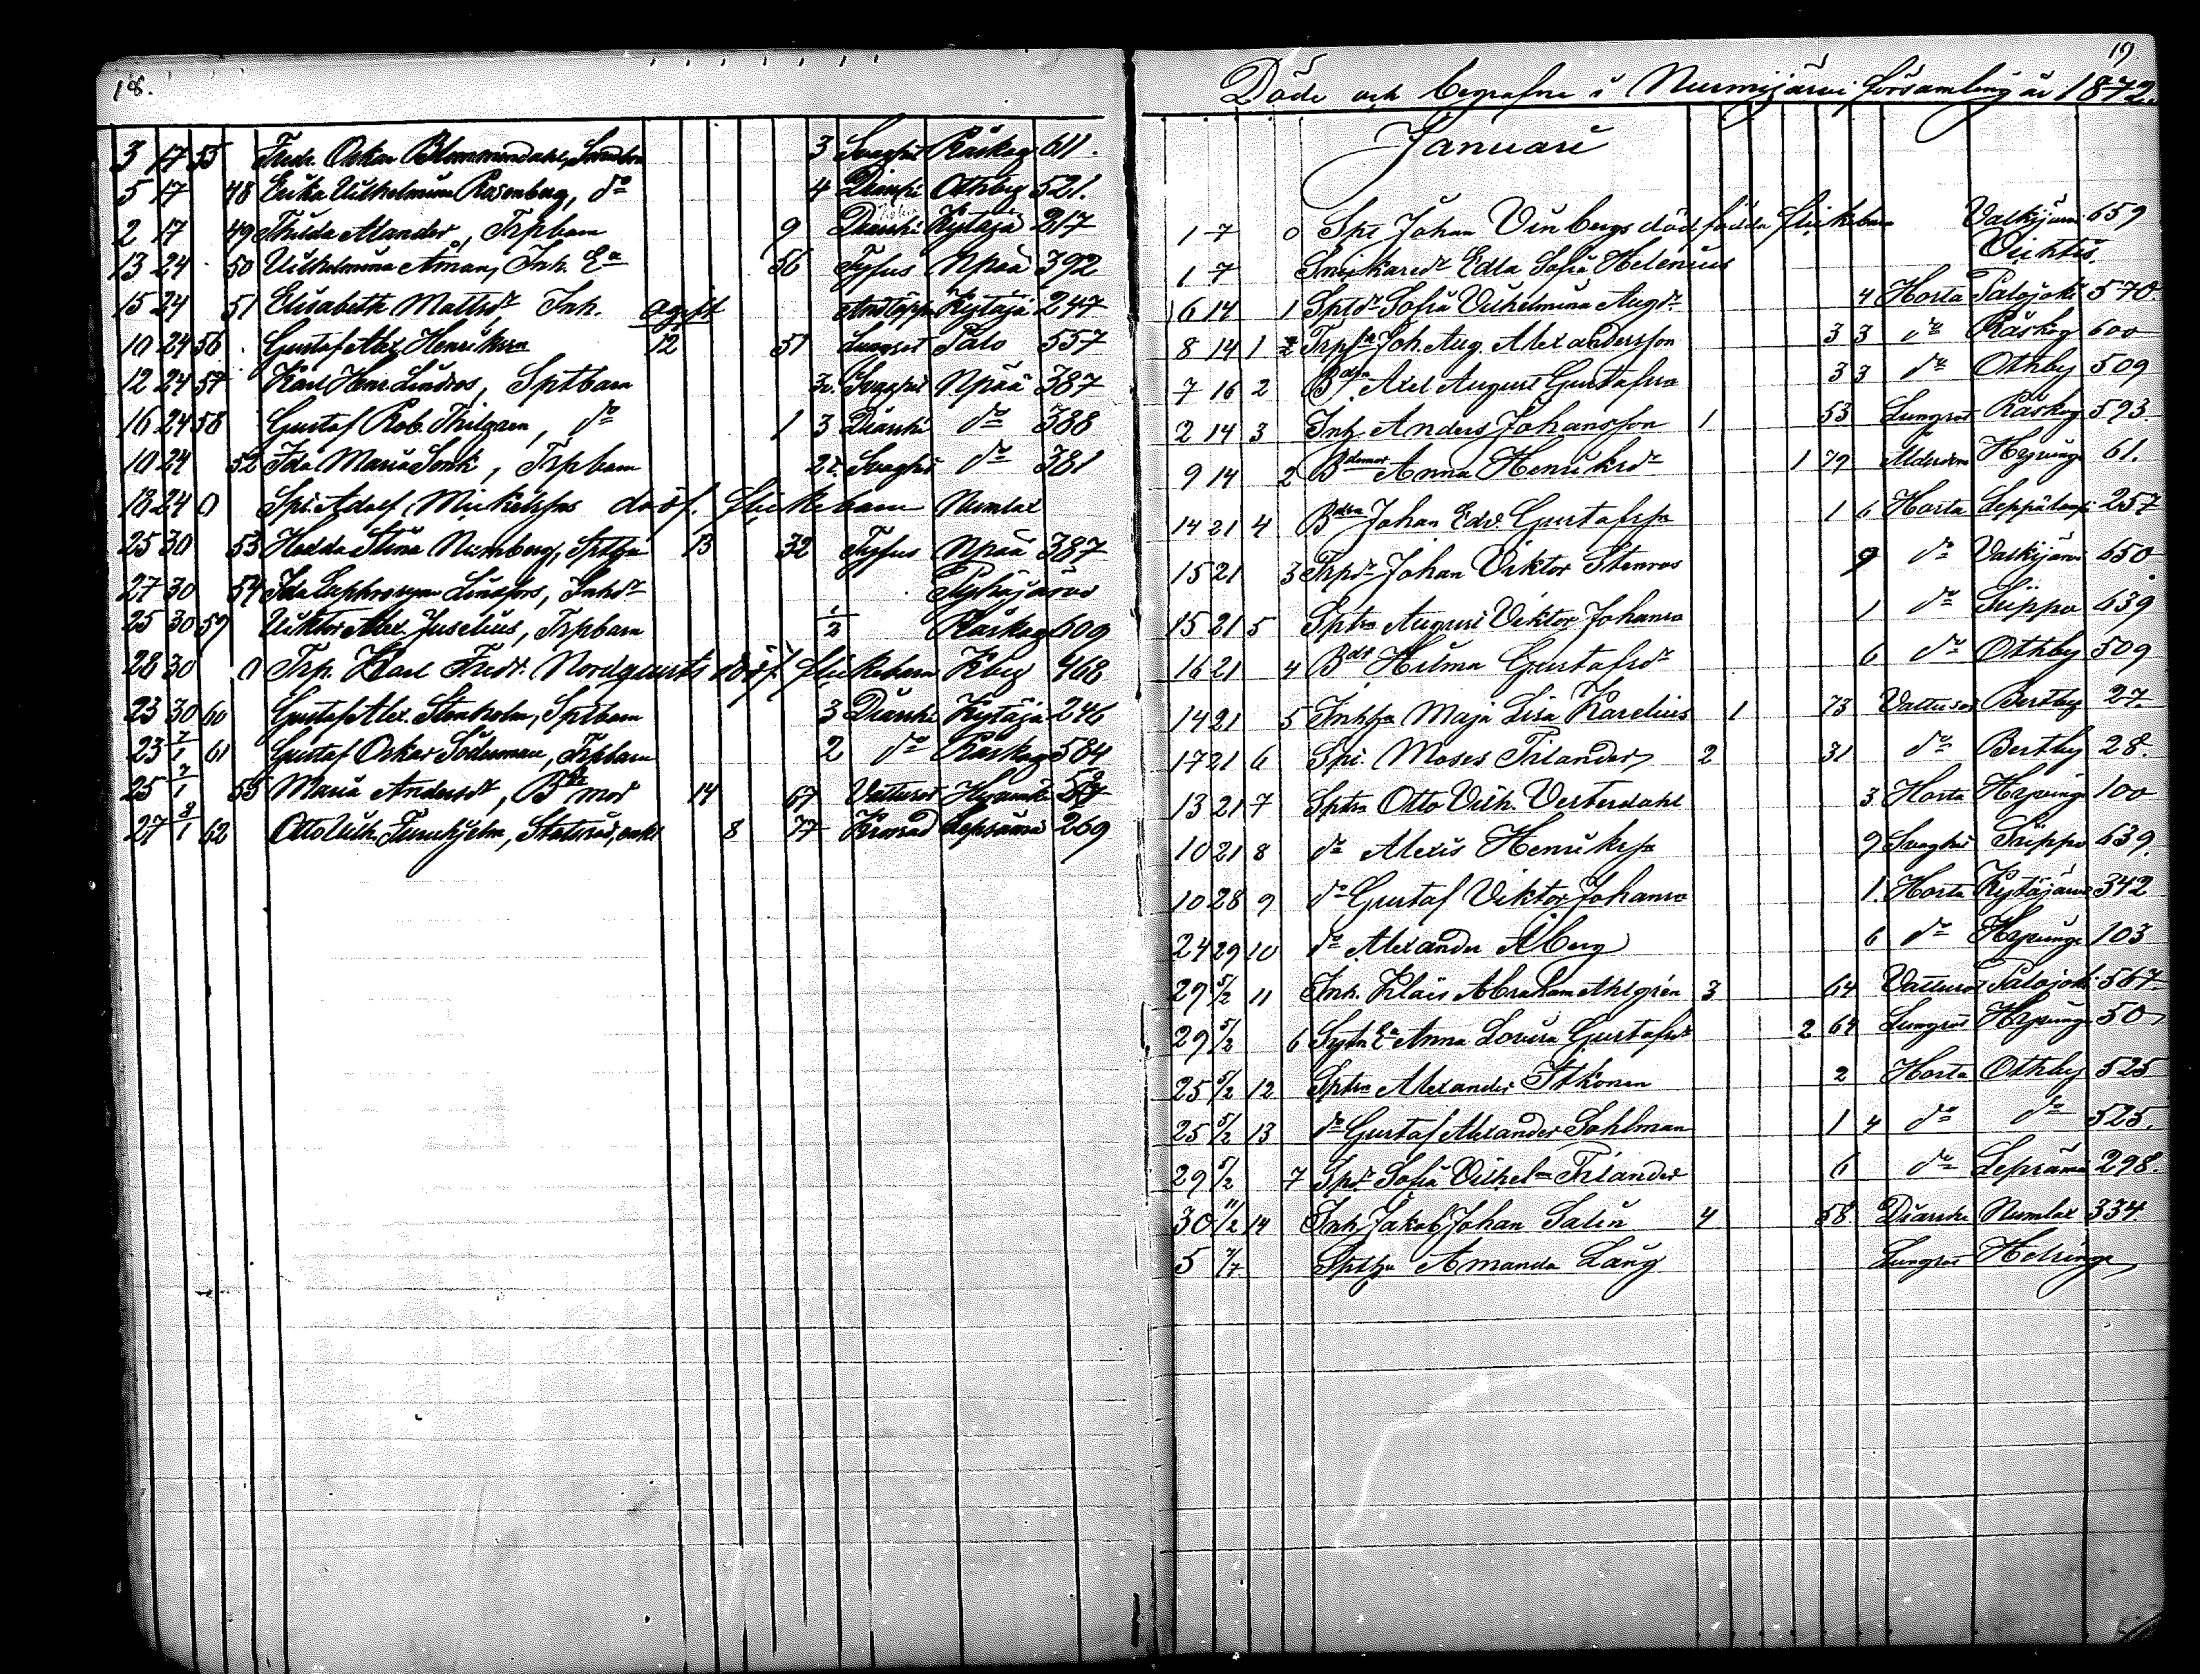 18.
3 17 55 Fredr. Oskar Blommendahl, 3 Svaghet Röskog 611.
5 17 48 Erika Vilhelmina Rosenberg, do 4 Diarrhé Othby 521.
2 17 49 Thilda Alander, Trpbarn 9 Diarrhé Kytäjä 217
13 24 50 Vilhelmina Åman, Inh. Ea 56 Tyfus Npää 392
15 24 51 Elisabeth Mattsdr Inh. ogift Kytäjä 247
10 24 56 Gustaf Alex. Henriksson 12 51 Lungsot Palo 557
12 24 57 Karl Henr. Lindros, Sptbarn 3v. Svaghet Npää 387
16 24 58 Gustaf Rob. Thilgren, do 1 3 Diarrhé do 388
10 24 52 Ida Maria Sonk, Trpbarn 2v. Svaghet do 381
18 24 0 Spt. Adolf Mickelssons dödf. flickebarn Numlax
25 30 53 Hedda Stina Numberg, Spthu 13 32 Tyfus Npää 387
27 30 54 Ida Euphrosyne Lindfors, Inhdr Kytäjärvi
25 30 59 Viktor Alex. Juselius, Trpbarn 1/2 Röskog 609
28 30 0 Trp. Karl Fredr. Nordqvists dödf. flickebarn Kbg 468
23 30 60 Gustaf Alex. Stenholm, Sptbarn 3 Diarrhé Kytäjä 246
23 7/1 61 Gustaf Oskar Söderman, Trpbarn 2 do Röskog 584
25 7/1 55 Maria Andersdr, Bdemor 14 67 Vattusot
27 3/1 62 Otto Vilh. Furuhjelm, Statsråd, enkl. 8 77 Lepsämä 269
19
Döde och begrafne i Nurmijärvi församling år 1872.
Januari
1 7 0 Spt Johan Vinbergs dödfödda flickebarn Valkjärvi 659
1 7 Snickaredr Edla Sofia Helenius Vichtis.
6 14 1 Sptdr Sofia Vilhelmina Augdr 4 Hosta Palojoki 570
8 14 1 Trpsn Joh. Aug. Alexandersson 3 3 do Röskog 600
7 16 2 Bdsn Axel August Gustafsson 3 3 do Othby 509
2 14 3 Inh. Anders Johansson 1 53 Lungsot Röskog 593
9 14 2 Bdemor Anna Henriksdr 1 79 Ålderdom Hejvinge 61.
14 21 4 Bdsn Johan Edv. Gustafsson 1 6 Hosta Leppälampi 257
15 21 3 Trpdr Johan Viktor Stenros 9 do Valkjärvi 650
15 21 5 Sptsn August Viktor Johansson 1 do Siippo 639
16 21 4 Bddr Hilma Gustafsdr 6 do Othby 509
14 21 5 Inhhu Maja Lisa Karelius 1 73 Vattusot Bertby 27.
17 21 6 Spt. Moses Filander 2 31 do Bertby 28.
13 21 7 Sptsn Otto Vilh. Vesterdahl 3 Hosta Hejvinge 100
10 21 8 do Alexis Henriksson 9 Svaghet Siippo 639.
10 28 9 do Gustaf Viktor Johansson 1. Hosta Kytäjärvi 342
24 29 10 do Alexander Åberg 6 do Hejvinge 103
29 5/2 11 Inh. Kläis Abraham Ahlgrén 3 64 Vattusot Palojoki 567
29 5/2 6 Ea Anna Lovisa Gustafsdr 2 64 Lungsot Hejvinge 50
25 5/2 12 Sptsn Alexander Itkonen 2 Hosta Othby 525
25 5/2 13 do Gustaf Alexander Sahlman 1 4 do do 525.
29 5/2 7 Spdr Sofia Vilhelmina Filander 6 do Lepsämä 298.
30 11/2 14 Inh. Jakob Johan Salin 4 58 Diarrhé Numlax 334.
5 Spthu Amanda Lang Lungsot Helsinge